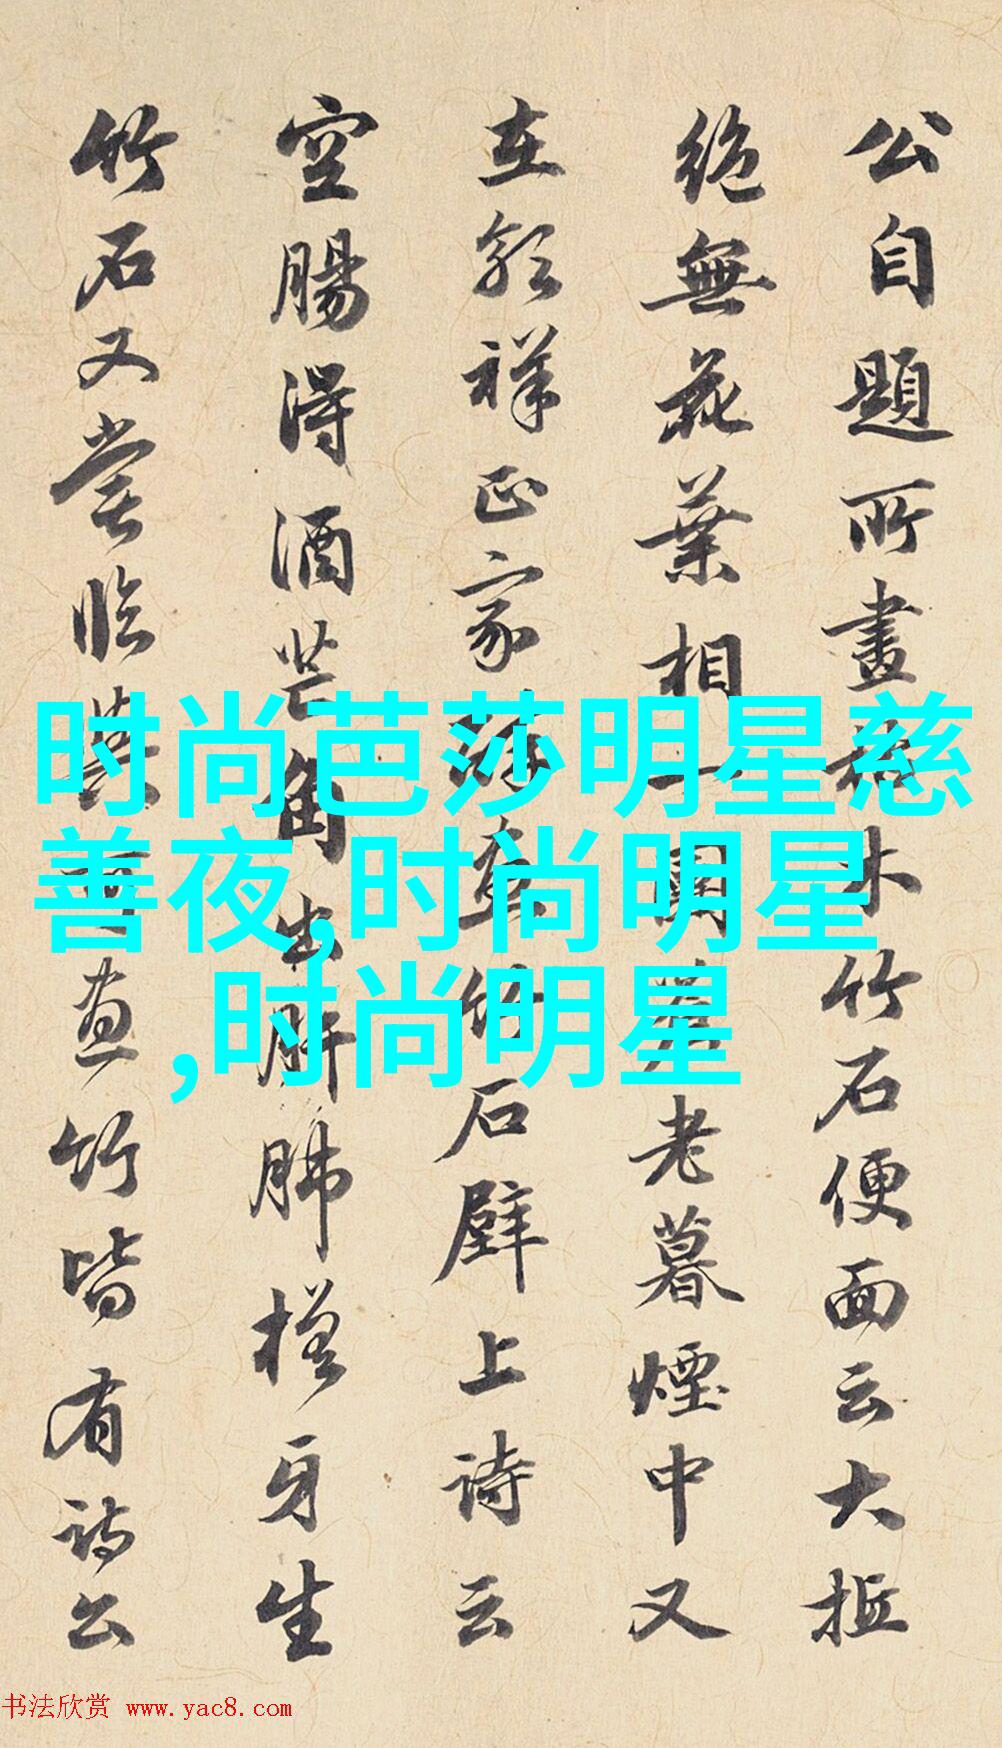 公自題所畫枯木竹石便面云大抵
絶無花葉相一團蒼老暮煙中又
在郭祥正家醉畫竹石壁上詩云
空腸得酒芒角出肝肺槎牙生
竹石又嘗臨與可畫竹皆有詩公
时尚芭莎明星慈
善夜,时尚明星
,时尚明星
书法欣赏 www.yac8.com